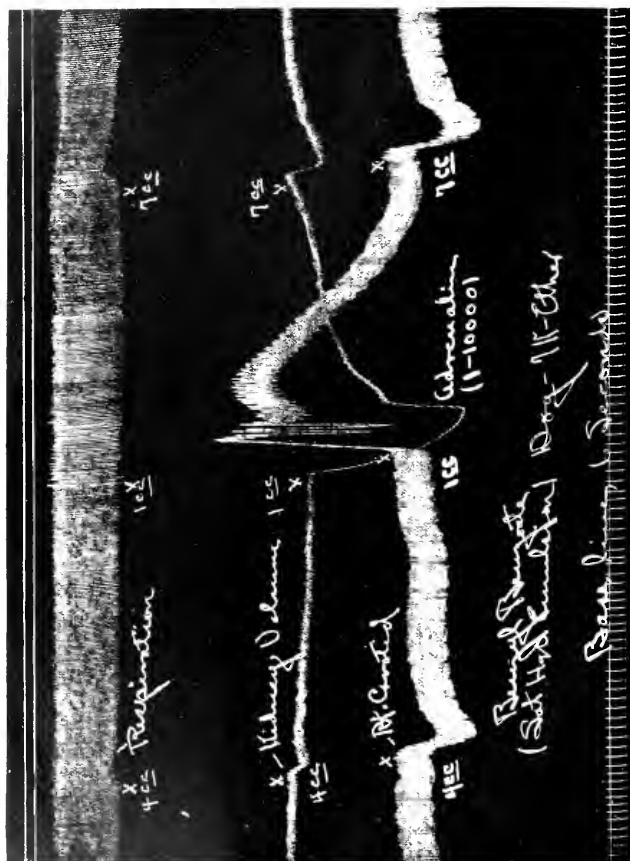 x x x
4cc Respiration 1cc 7cc
x - Kidney Volume 1cc x 7cc x
4cc
x - Rt. Carotid x x
4cc 1cc 7cc
Adrenalin
(1-10000)
Benzyl Benzoate
(Sat Hyd Emulsion) Dog - 7K - Ether
Base line (Seconds)